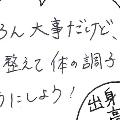 ろん大事だけど、
整えて体の調子
うにしよう！
出身